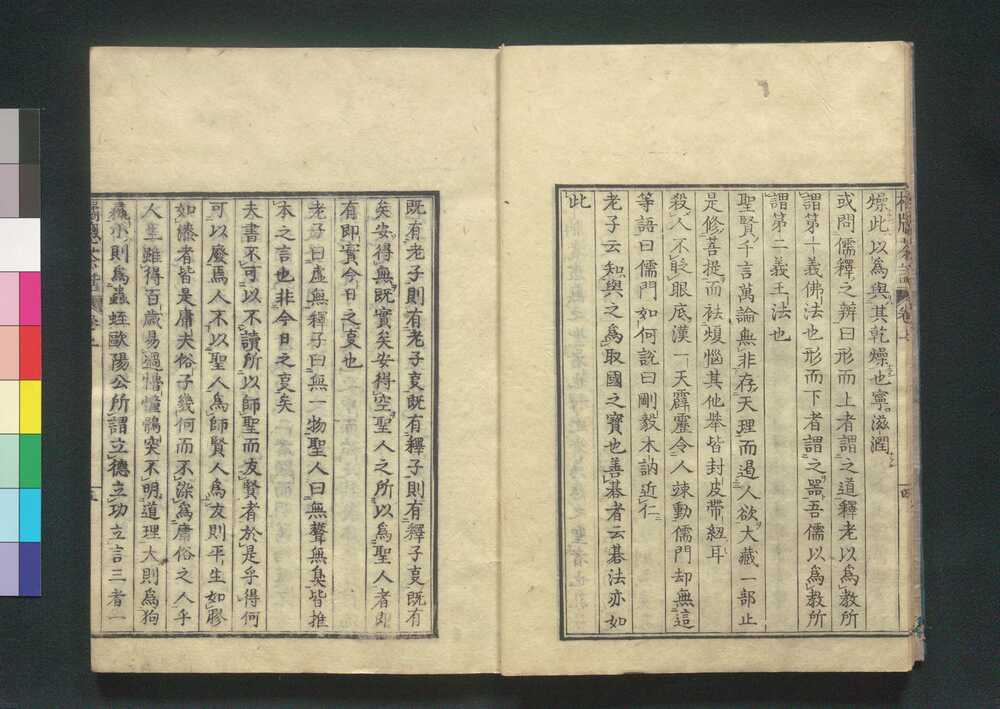 燥此以為與其乾燥也寧滋潤
或問儒釋之辨曰形而上者謂之道釋老以為教所
謂第一義佛法也形而下者謂之噐吾儒以為教所
謂第二義王法也
聖賢千言萬論無非存天理而遏人欲大藏一部止
是修菩提而袪煩惱其他舉皆封皮帶紐耳
殺人不眨眼底漢一天霹靂令人竦動儒門却無這
等語曰儒門如何說曰剛毅木訥近仁
老子云知與之為取國之寶也善碁者云碁法亦如
此
既有老子則有老子叓既有釋子則有釋子叓既有
矣安得無既實矣安得空聖人之所以為聖人者即
有即實今日之叓也
老子曰虛無釋子曰無一物聖人曰無聲無臭皆推
本之言也非今日之叓矣
夫書不可以不讀所以師聖而友賢者於是乎得何
可以廢焉人不以聖人為師賢人為友則平生如膠
如漆者皆是庸夫俗子幾何而不染為庸俗之人乎
人生雖得百歲易過懵懂鶻突不明道理大則為狗
彘小則為蟲蛭歐陽公所謂立德立功立言三者一